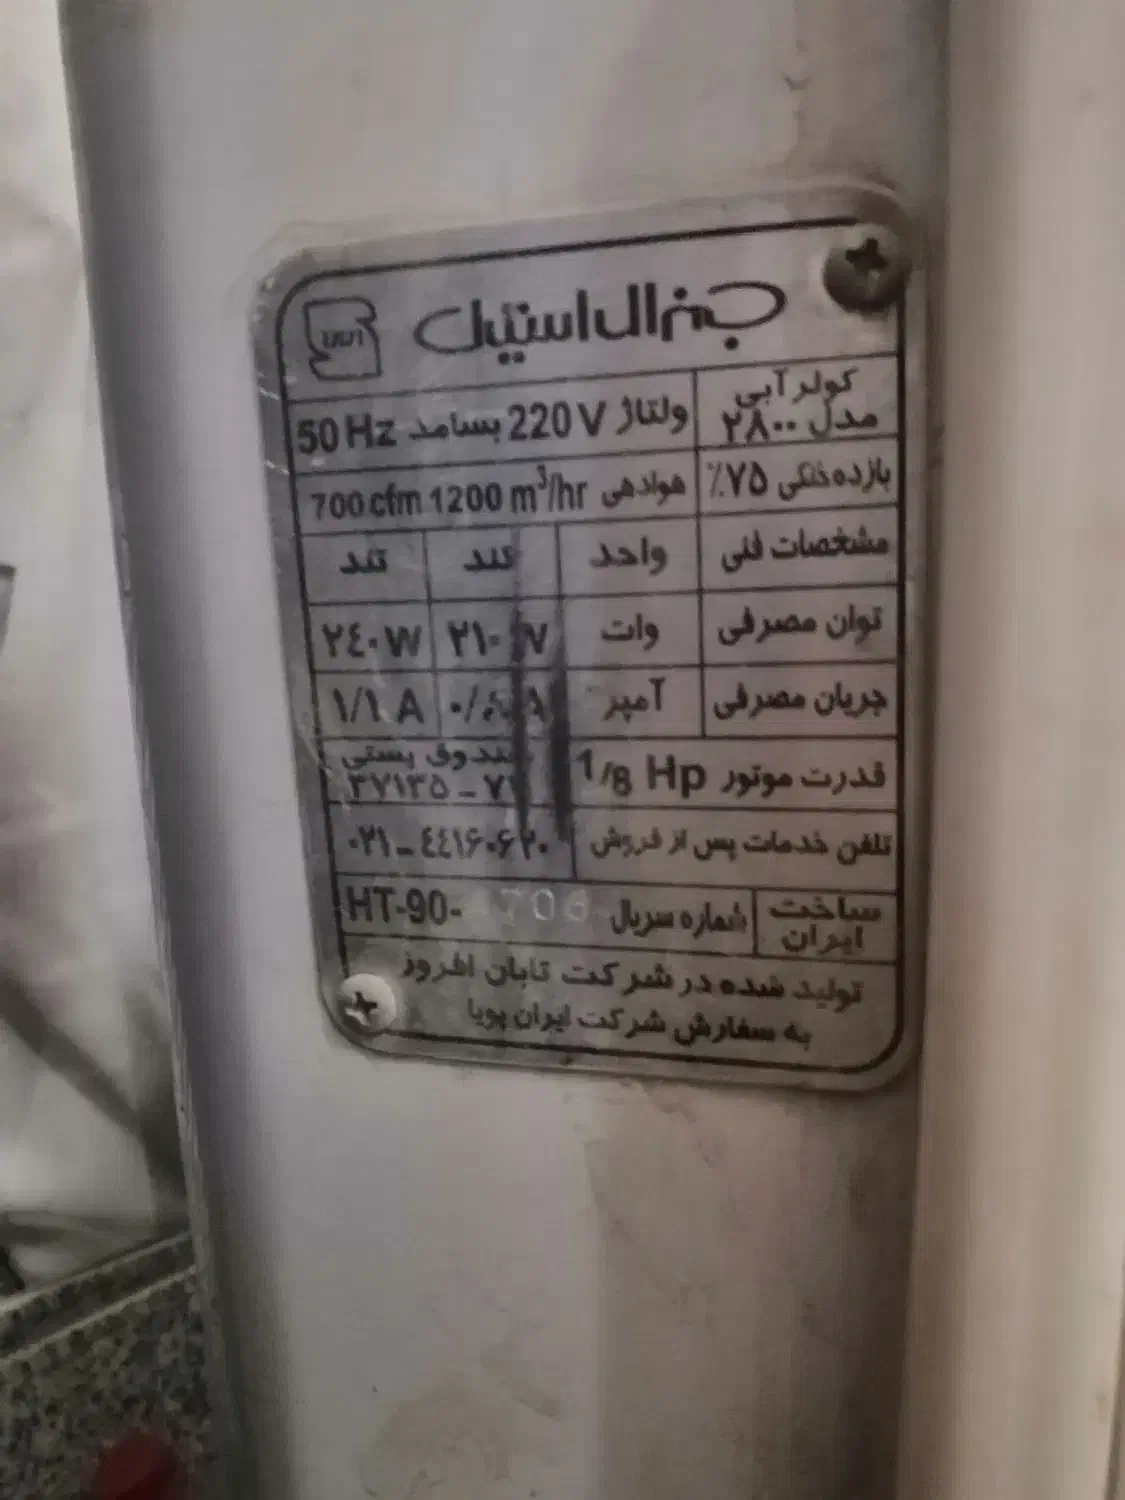 جنرال استیل
کولر آبی
مدل ۲۸۰۰
ولتاژ 220V بسامد 50 Hz
بازده خنکی ۷۵٪
هوادهی 1200 m³/hr 700cfm
مشخصات فنی واحد کند تند
توان مصرفی وات ۲۱۰ ۲٤۰W
جریان مصرفی آمپر ۱/۱ A
قدرت موتور 1/8 Hp
پستی
۳۷۱۳۵ -
تلفن خدمات پس از فروش ۰۲۱ - ٤٤۱۶۰۶۲۰
ساخت
ایران
شماره سریال HT-90- 706
تولید شده در شرکت تابان افروز
به سفارش شرکت ایران پویا